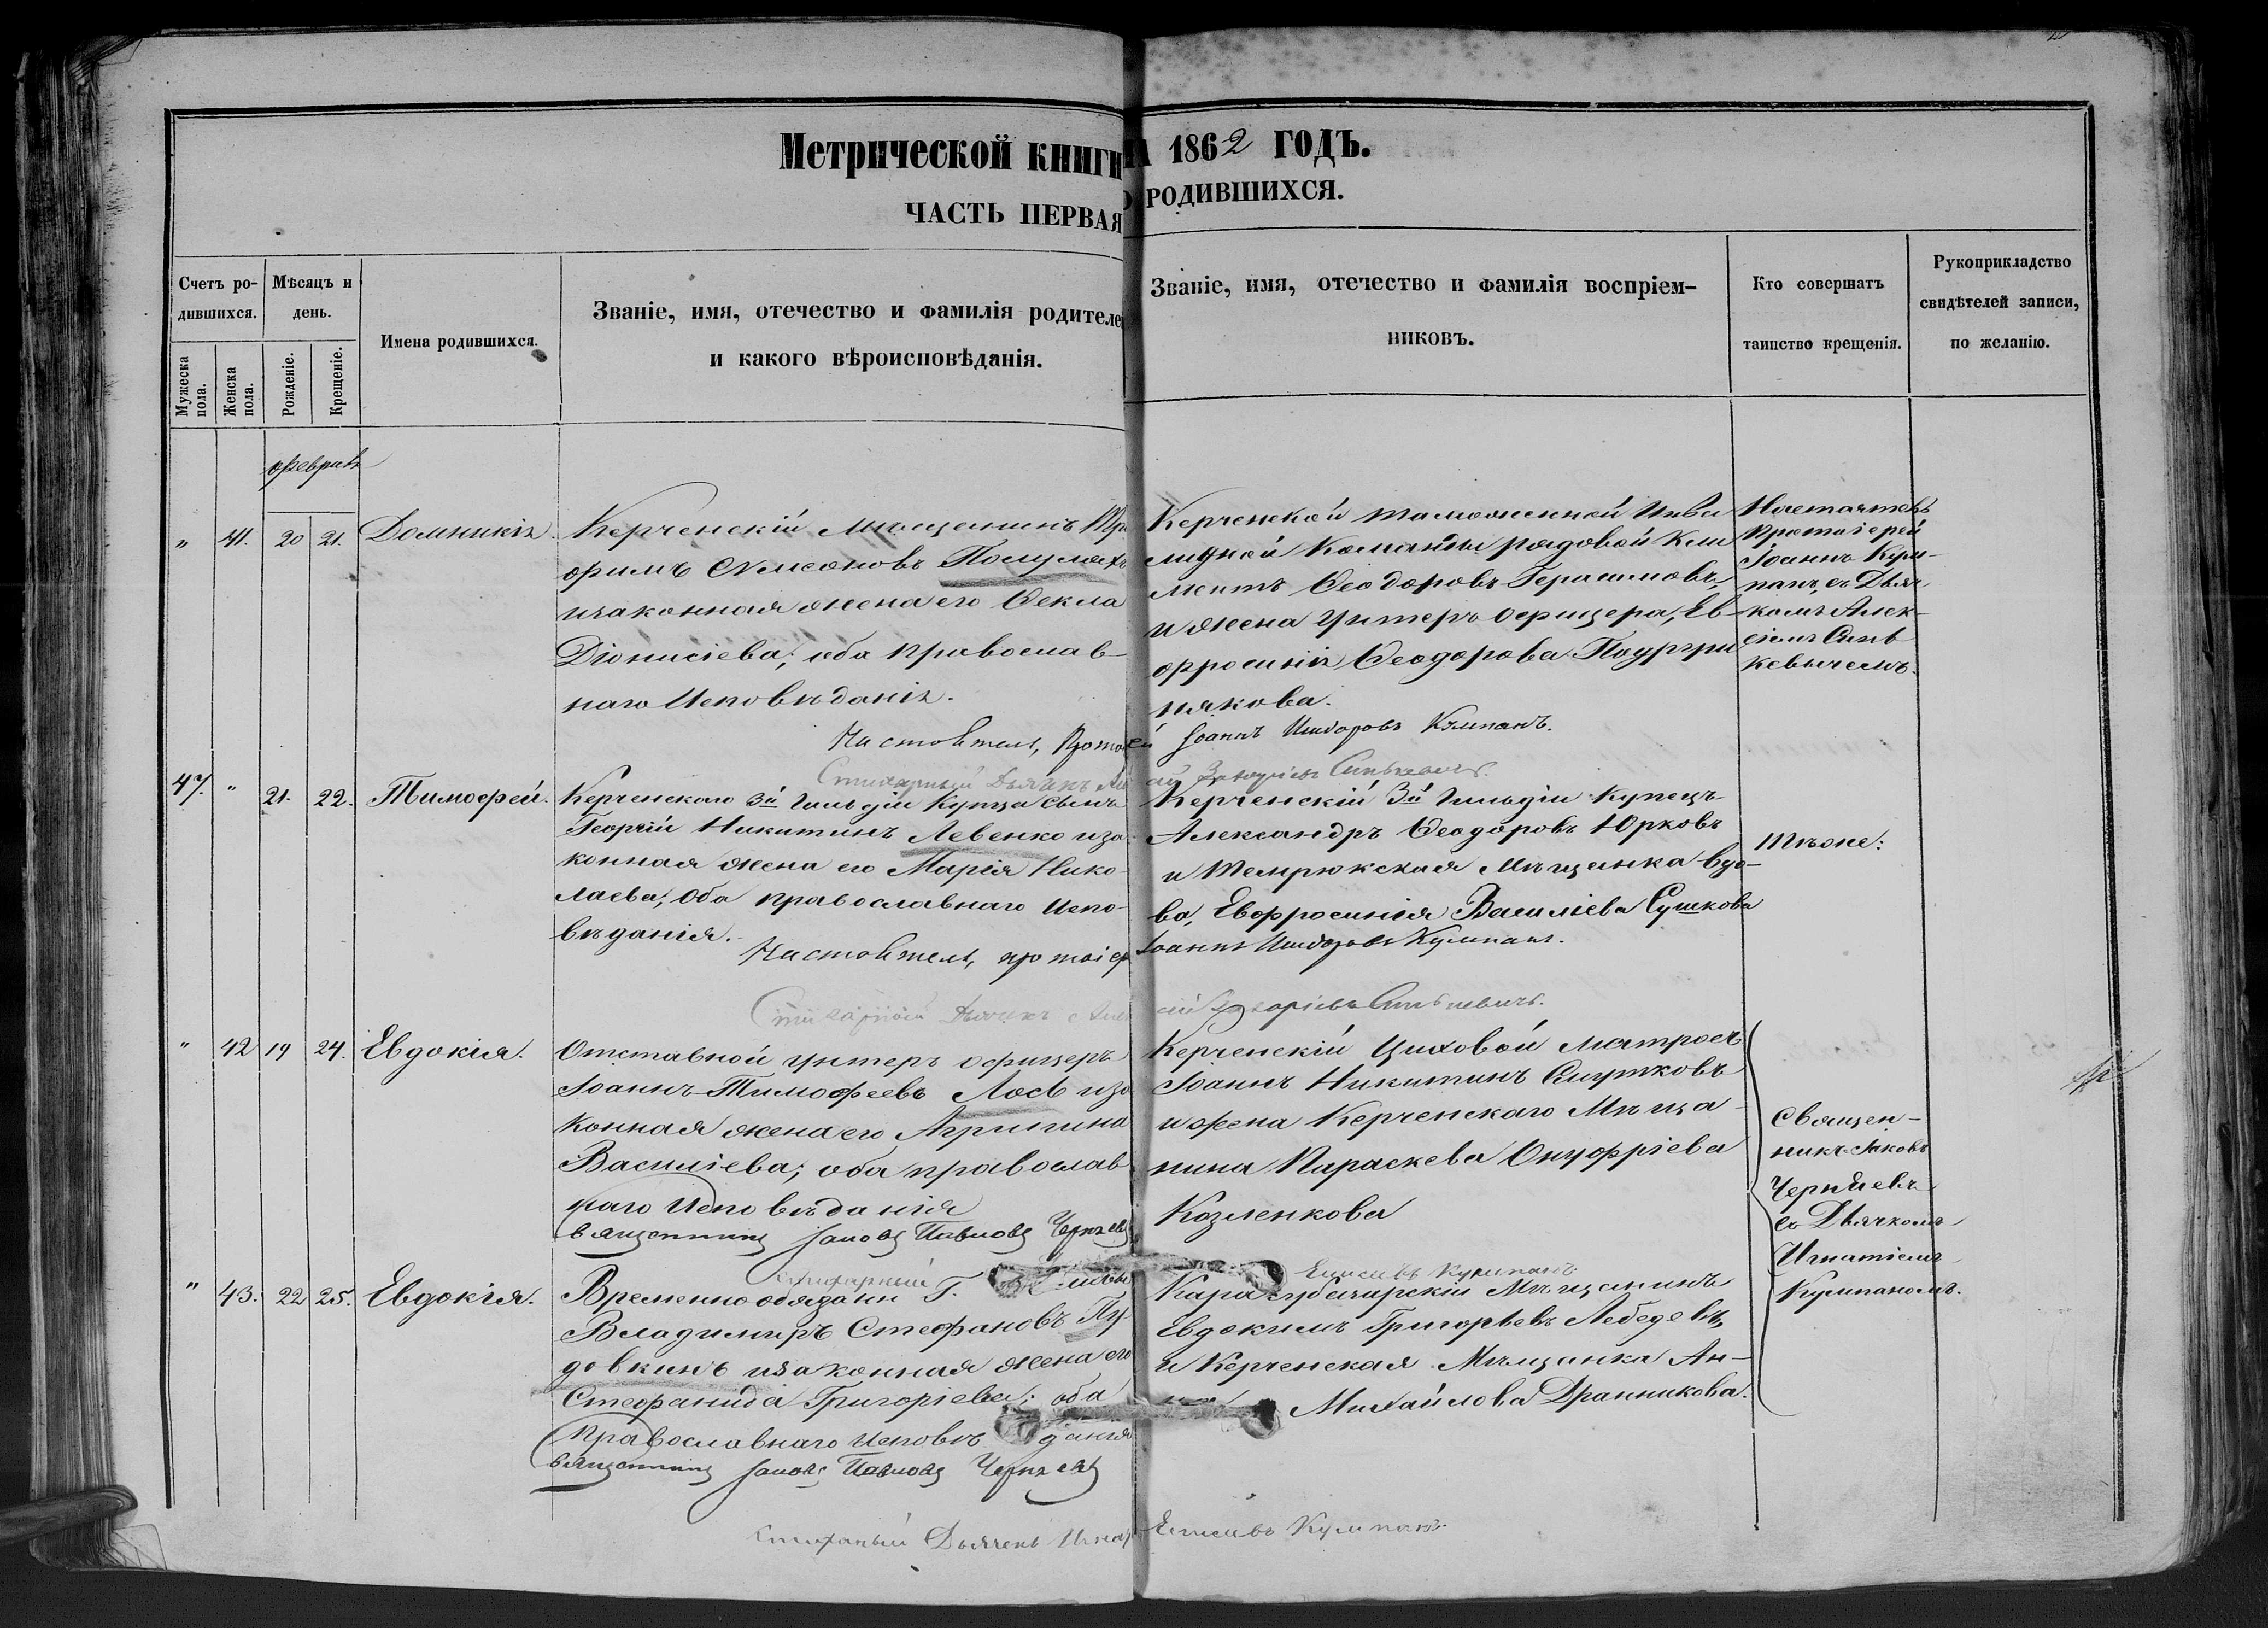 Метрической книги на 1862 годъ.
ЧАСТЬ ПЕРВАЯ О РОДИВШИХСЯ.
Счетъ родившихся.
Мужеска пола.
Женска пола.
Мѣсяцъ и день.
Рожденіе.
Крещеніе.
Имена родившихся.
Званіе, имя, отечество и фамилія родителей
и какого вѣроисповѣданія.
Званіе, имя, отечество и фамилія воспріем-
никовъ.
Кто совершатъ
таинство крещенія.
Рукоприкладство
свидѣтелей записи,
по желанію.
февраль
" 41. 20 21. Домникія.
Керченскій Мѣщанинъ
и законная жена его Ѳекла
Діонисіева; оба православ-
наго Исповѣданія.
Керченской таможенной Инва
лидной Команды рядовой Кли
ментъ Ѳеодоровъ Герасимовъ,
и жена унтеръ офицера, Ев-
фросинія Ѳеодорова
някова.
Настоятель
Протоіерей
Іоаннъ Кум-
панъ, съ Дьяч
комъ Алек-
сіемъ Синь
кевичемъ.
Настоятель, Протоіерей Іоаннъ Исидоровъ Кумпанъ.
Стихарный Дьячекъ Синькевичъ.
47. " 21. 22. Тимофей.
Керченскаго 3й Гильдіи Купца сынъ
Георгій Никитинъ Левенко и за-
конная жена его Марія Нико-
лаева; оба православнаго Испо-
вѣданія.
Керченскій 3й Гильдіи Купецъ
Александръ Ѳеодоровъ Юрковъ
и Темрюкская Мѣщанка вдо-
ва, Евфросинія Василіева Сушкова
Тѣже:
Настоятель, протоіерей Іоаннъ Исидоровъ Кумпанъ.
Стихарный Дьячекъ Синькевичъ.
" 42 19 24. Евдокія.
Отставной унтеръ офицеръ
Іоаннъ Тимофеевъ Лось и за
конная жена его Агрипина
Василіева; оба православ
наго Исповѣданія
Священникъ Іаковъ Павловъ Черняевъ
Керченскій Цеховой Матросъ
Іоаннъ Никитинъ
и жена Керченскаго Мѣща-
нина Параскева Онуфріева
Козленкова
Священ-
никъ Іаковъ
Черняевъ
съ Дьячкомъ
Игнатіемъ
Кумпаномъ.
Стихарный Елисеевъ Кумпанъ
" 43. 22 25. Евдокія.
Временно обязанн Г.
Владимиръ Стефановъ Пу-
довкинъ и законная жена его
Стефанида Григоріева; оба
православнаго Исповѣданія
Священникъ Іаковъ Павловъ Черняевъ
Карасубазарскій Мѣщанинъ
Евдокимъ Григорьевъ Лебедевъ,
и Керченская Мѣщанка Ан-
на Михайлова Дранникова.
Стихарный Дьячекъ Елисеевъ Кумпанъ